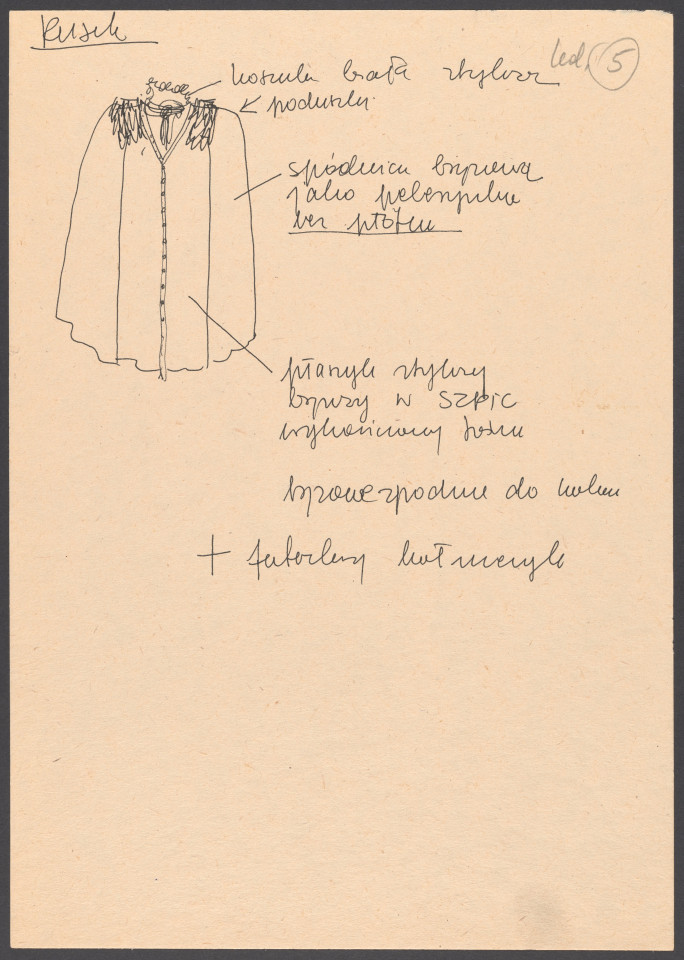 Rusek
kod. 5
koszula biała stylowa
poduszki
spódnica brązowa
jako pelerynka
bez płótna
płaszyk stylowy
brązowy w SZPIC
wykończony
brązowe spodnie do kolan
+ futerkowy kołnierzyk